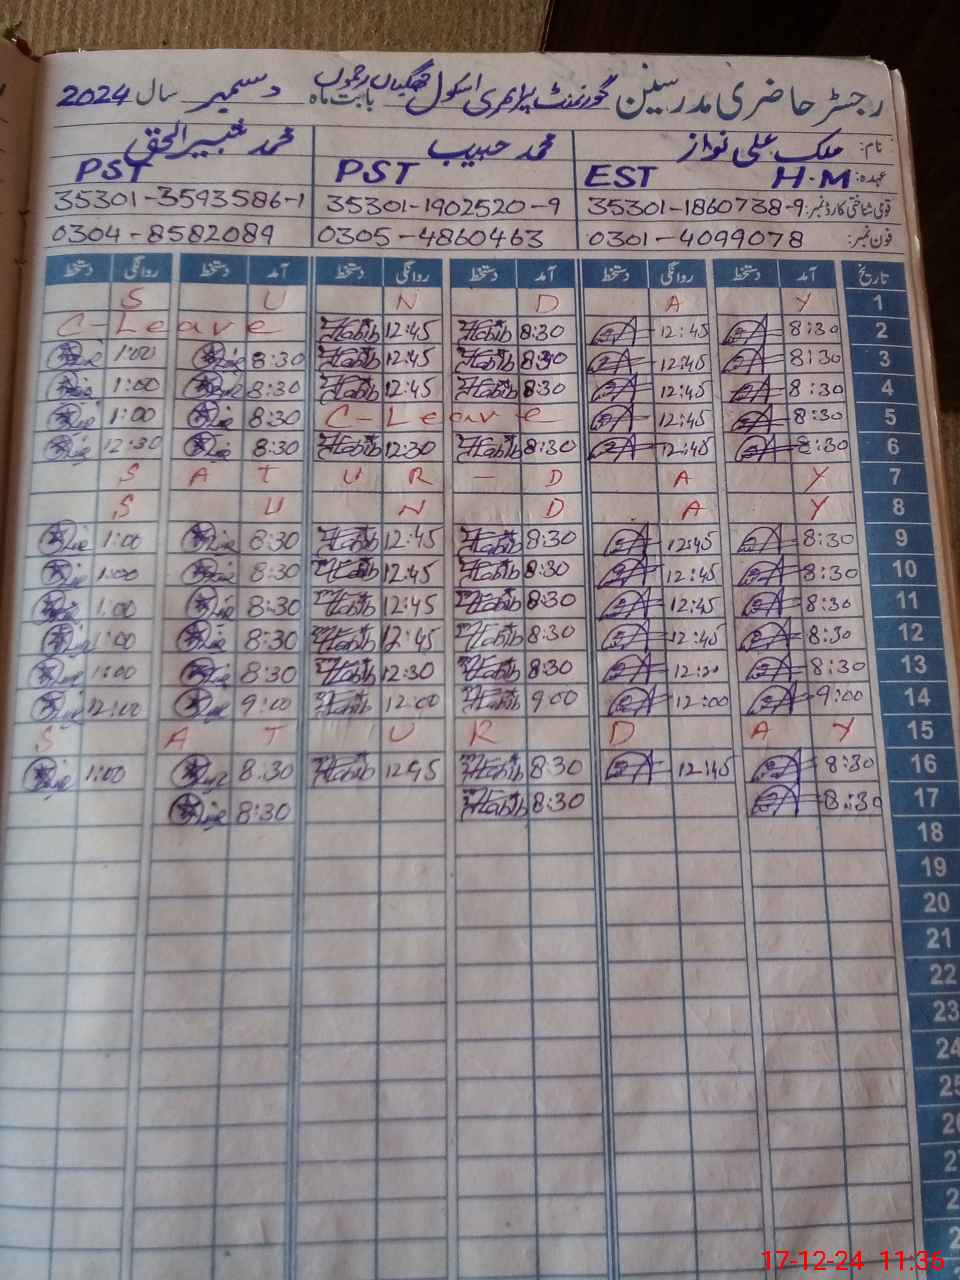 رجسٹر حاضری مدرسین گورنمنٹ پرائمری اسکول جھگیاں رحموں بابت ماہ دسمبر سال 2024
نام: ملک علی نواز محمد حبیب محمد خبیر الحق
عہدہ: H.M EST PST PST
قومی شناختی کارڈ نمبر: 35301-1860738-9 35301-1902520-9 35301-3593586-1
فون نمبر: 0301-4099078 0305-4860463 0304-8582089
تاریخ آمد دستخط روانگی دستخط آمد دستخط روانگی دستخط آمد دستخط روانگی دستخط
S U N D A Y 1
C-Leave Habib 12:45 Habib 8:30 12:45 8:30 2
1:00 8:30 Habib 12:45 Habib 8:30 12:45 8:30 3
1:00 8:30 Habib 12:45 Habib 8:30 12:45 8:30 4
1:00 8:30 C-Leave 12:45 8:30 5
12:30 8:30 Habib 12:30 Habib 8:30 12:45 8:30 6
S A T U R - D A Y 7
S U N D A Y 8
1:00 8:30 Habib 12:45 Habib 8:30 12:45 8:30 9
1:00 8:30 Habib 12:45 Habib 8:30 12:45 8:30 10
1:00 8:30 Habib 12:45 Habib 8:30 12:45 8:30 11
1:00 8:30 Habib 12:45 Habib 8:30 12:45 8:30 12
1:00 8:30 Habib 12:30 Habib 8:30 8:30 13
12:00 9:00 Habib 12:00 Habib 9:00 12:00 9:00 14
S A T U R D A Y 15
1:00 8:30 Habib 12:45 Habib 8:30 12:45 8:30 16
8:30 Habib 8:30 8:30 17
18
19
20
21
22
23
24
25
17-12-24 11:36